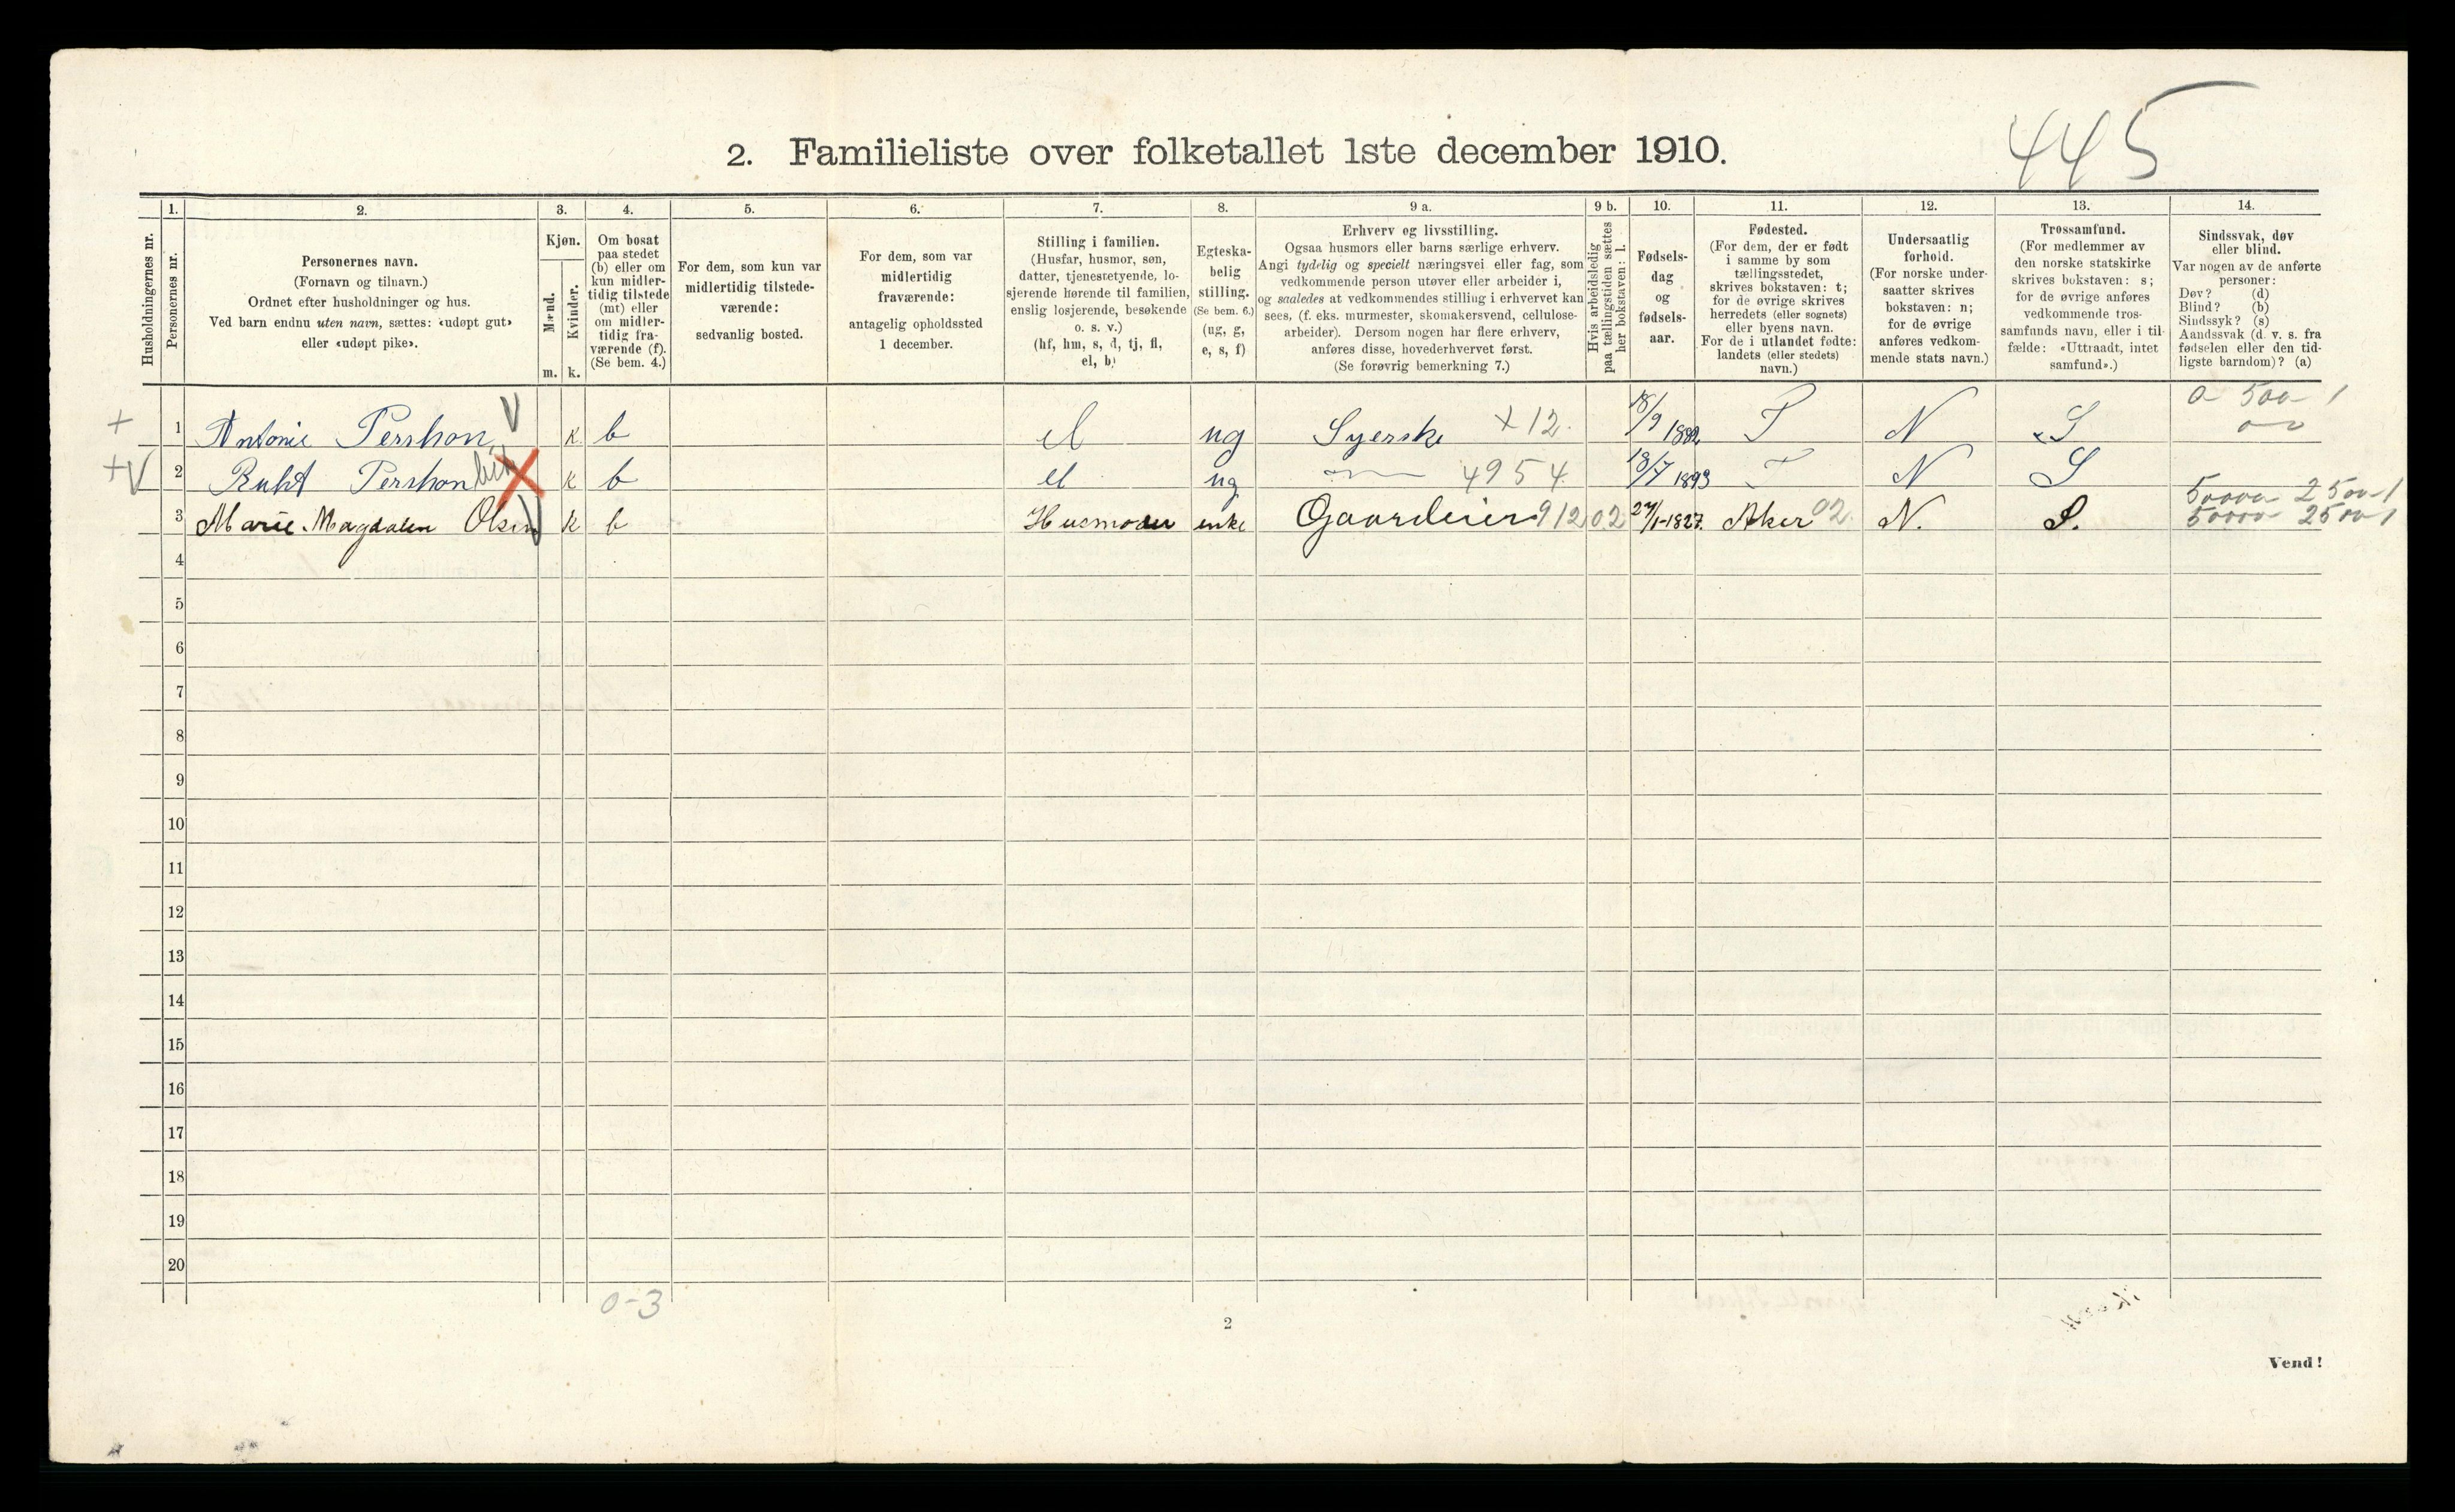 445
2. Familieliste over folketallet 1ste december 1910.
Husholdningernes nr.
1. Personernes nr.
2. Personernes navn.
(Fornavn og tilnavn.)
Ordnet efter husholdninger og hus.
Ved barn endnu uten navn, sættes: «udøpt gut»
eller «udøpt pike».
3. Kjøn.
Mænd. m.
Kvinder. k.
4. Om bosat
paa stedet
(b) eller om
kun midler-
tidig tilstede
(mt) eller
om midler-
tidig fra-
værende (f).
(Se bem. 4.)
5. For dem, som kun var
midlertidig tilstede-
værende:
sedvanlig bosted.
6. For dem, som var
midlertidig
fraværende:
antagelig opholdssted
1 december.
7. Stilling i familien.
(Husfar, husmor, søn,
datter, tjenestetyende, lo-
sjerende hørende til familien,
enslig losjerende, besøkende
o. s. v.)
(hf, hm, s, d, tj, fl,
el, b)
8. Egteska-
belig
stilling.
(Se bem. 6.)
(ug, g,
e, s, f)
9 a. Erhverv og livsstilling.
Ogsaa husmors eller barns særlige erhverv.
Angi tydelig og specielt næringsvei eller fag, som
vedkommende person utøver eller arbeider i,
og saaledes at vedkommendes stilling i erhvervet kan
sees, (f. eks. murmester, skomakersvend, cellulose-
arbeider). Dersom nogen har flere erhverv,
anføres disse, hovederhvervet først.
(Se forøvrig bemerkning 7.)
9 b. Hvis arbeidsledig
paa tællingstiden sættes
her bokstaven: l.
10. Fødsels-
dag
og
fødsels-
aar.
11. Fødested.
(For dem, der er født
i samme by som
tællingsstedet,
skrives bokstaven: t;
for de øvrige skrives
herredets (eller sognets)
eller byens navn.
For de i utlandet fødte:
landets (eller stedets)
navn.)
12. Undersaatlig
forhold.
(For norske under-
saatter skrives
bokstaven: n;
for de øvrige
anføres vedkom-
mende stats navn.)
13. Trossamfund.
(For medlemmer av
den norske statskirke
skrives bokstaven: s;
for de øvrige anføres
vedkommende tros-
samfunds navn, eller i til-
fælde: «Uttraadt, intet
samfund».)
14. Sindssvak, døv
eller blind.
Var nogen av de anførte
personer:
Døv? (d)
Blind? (b)
Sindssyk? (s)
Aandssvak (d. v. s. fra
fødselen eller den tid-
ligste barndom)? (a)
+ 1 Antonie Pershon V k b el ug Syerske + 12. 18/9 1892 T N S 0 500 1
+V 2 Ruht Pershon k b el ug 4954. 18/7 1893 T N S
3 Marie. Magdalen Olsen V k b Husmoder enke Gaardeier 912 02 27/1-1827. Aker 02. N. S. 50000 2500 1
50000 2500 1
4
5
6
7
8
9
10
11
12
13
14
15
16
17
18
19
20
0-3
2
Vend!